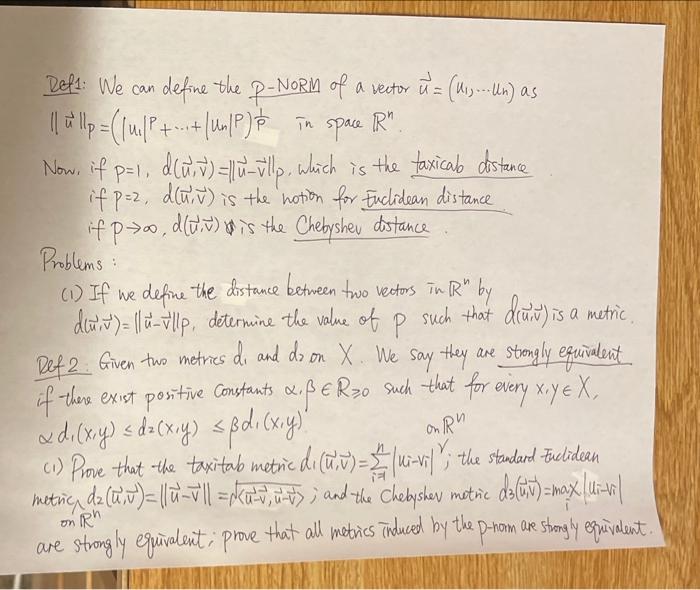 Def1: We can define the p-NORM of a vector u⃗ = (u₁,...uₙ) as
||u⃗||ₚ = (|u₁|ᵖ + ... + |uₙ|ᵖ)^(1/p) in space Rⁿ.
Now, if p=1, d(u⃗,v⃗)=||u⃗-v⃗||ₚ, which is the taxicab distance
if p=2, d(u⃗,v⃗) is the notion for Euclidean distance
if p→∞, d(u⃗,v⃗) is the Chebyshev distance.
Problems:
(1) If we define the distance between two vectors in Rⁿ by
d(u⃗,v⃗)=||u⃗-v⃗||ₚ, determine the value of p such that d(u⃗,v⃗) is a metric.
Def 2: Given two metrics d₁ and d₂ on X. We say they are strongly equivalent
if there exist positive constants α,β∈R≥0 such that for every x,y∈X,
αd₁(x,y) ≤ d₂(x,y) ≤ βd₁(x,y).
on Rⁿ
(1) Prove that the taxitab metric d₁(u⃗,v⃗)=∑ⁿᵢ₌₁|uᵢ-vᵢ|; the standard Euclidean
metric d₂(u⃗,v⃗)=||u⃗-v⃗||=√<u⃗-v⃗,u⃗-v⃗>; and the Chebyshev metric d₃(u⃗,v⃗)=maxᵢ|uᵢ-vᵢ|
on Rⁿ
are strongly equivalent; prove that all metrics induced by the p-norm are strongly equivalent.